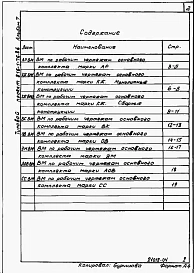 2
Содержание
Лист
Наименование
Стр.
ВМ по рабочим чертежам основного
комплекта марки АР
3-5
ВМ по рабочим чертежам основного
комплекта марки КЖ. Монолитные
конструкции
6-8
ВМ по рабочим чертежам основного
комплекта марки КЖ. Сборные
конструкции
9-11
ВМ по рабочим чертежам основного
комплекта марки ВК
12-13
ВМ по рабочим чертежам основного
комплекта марки ОВ
14-15
ВМ по рабочим чертежам основного
16-17
комплекта марки ЭМ
ВМ по рабочим чертежам основного
комплекта марки АОВ
18
ВМ по рабочим чертежам основного
комплекта марки СС
19
Копировал:
Формат А4